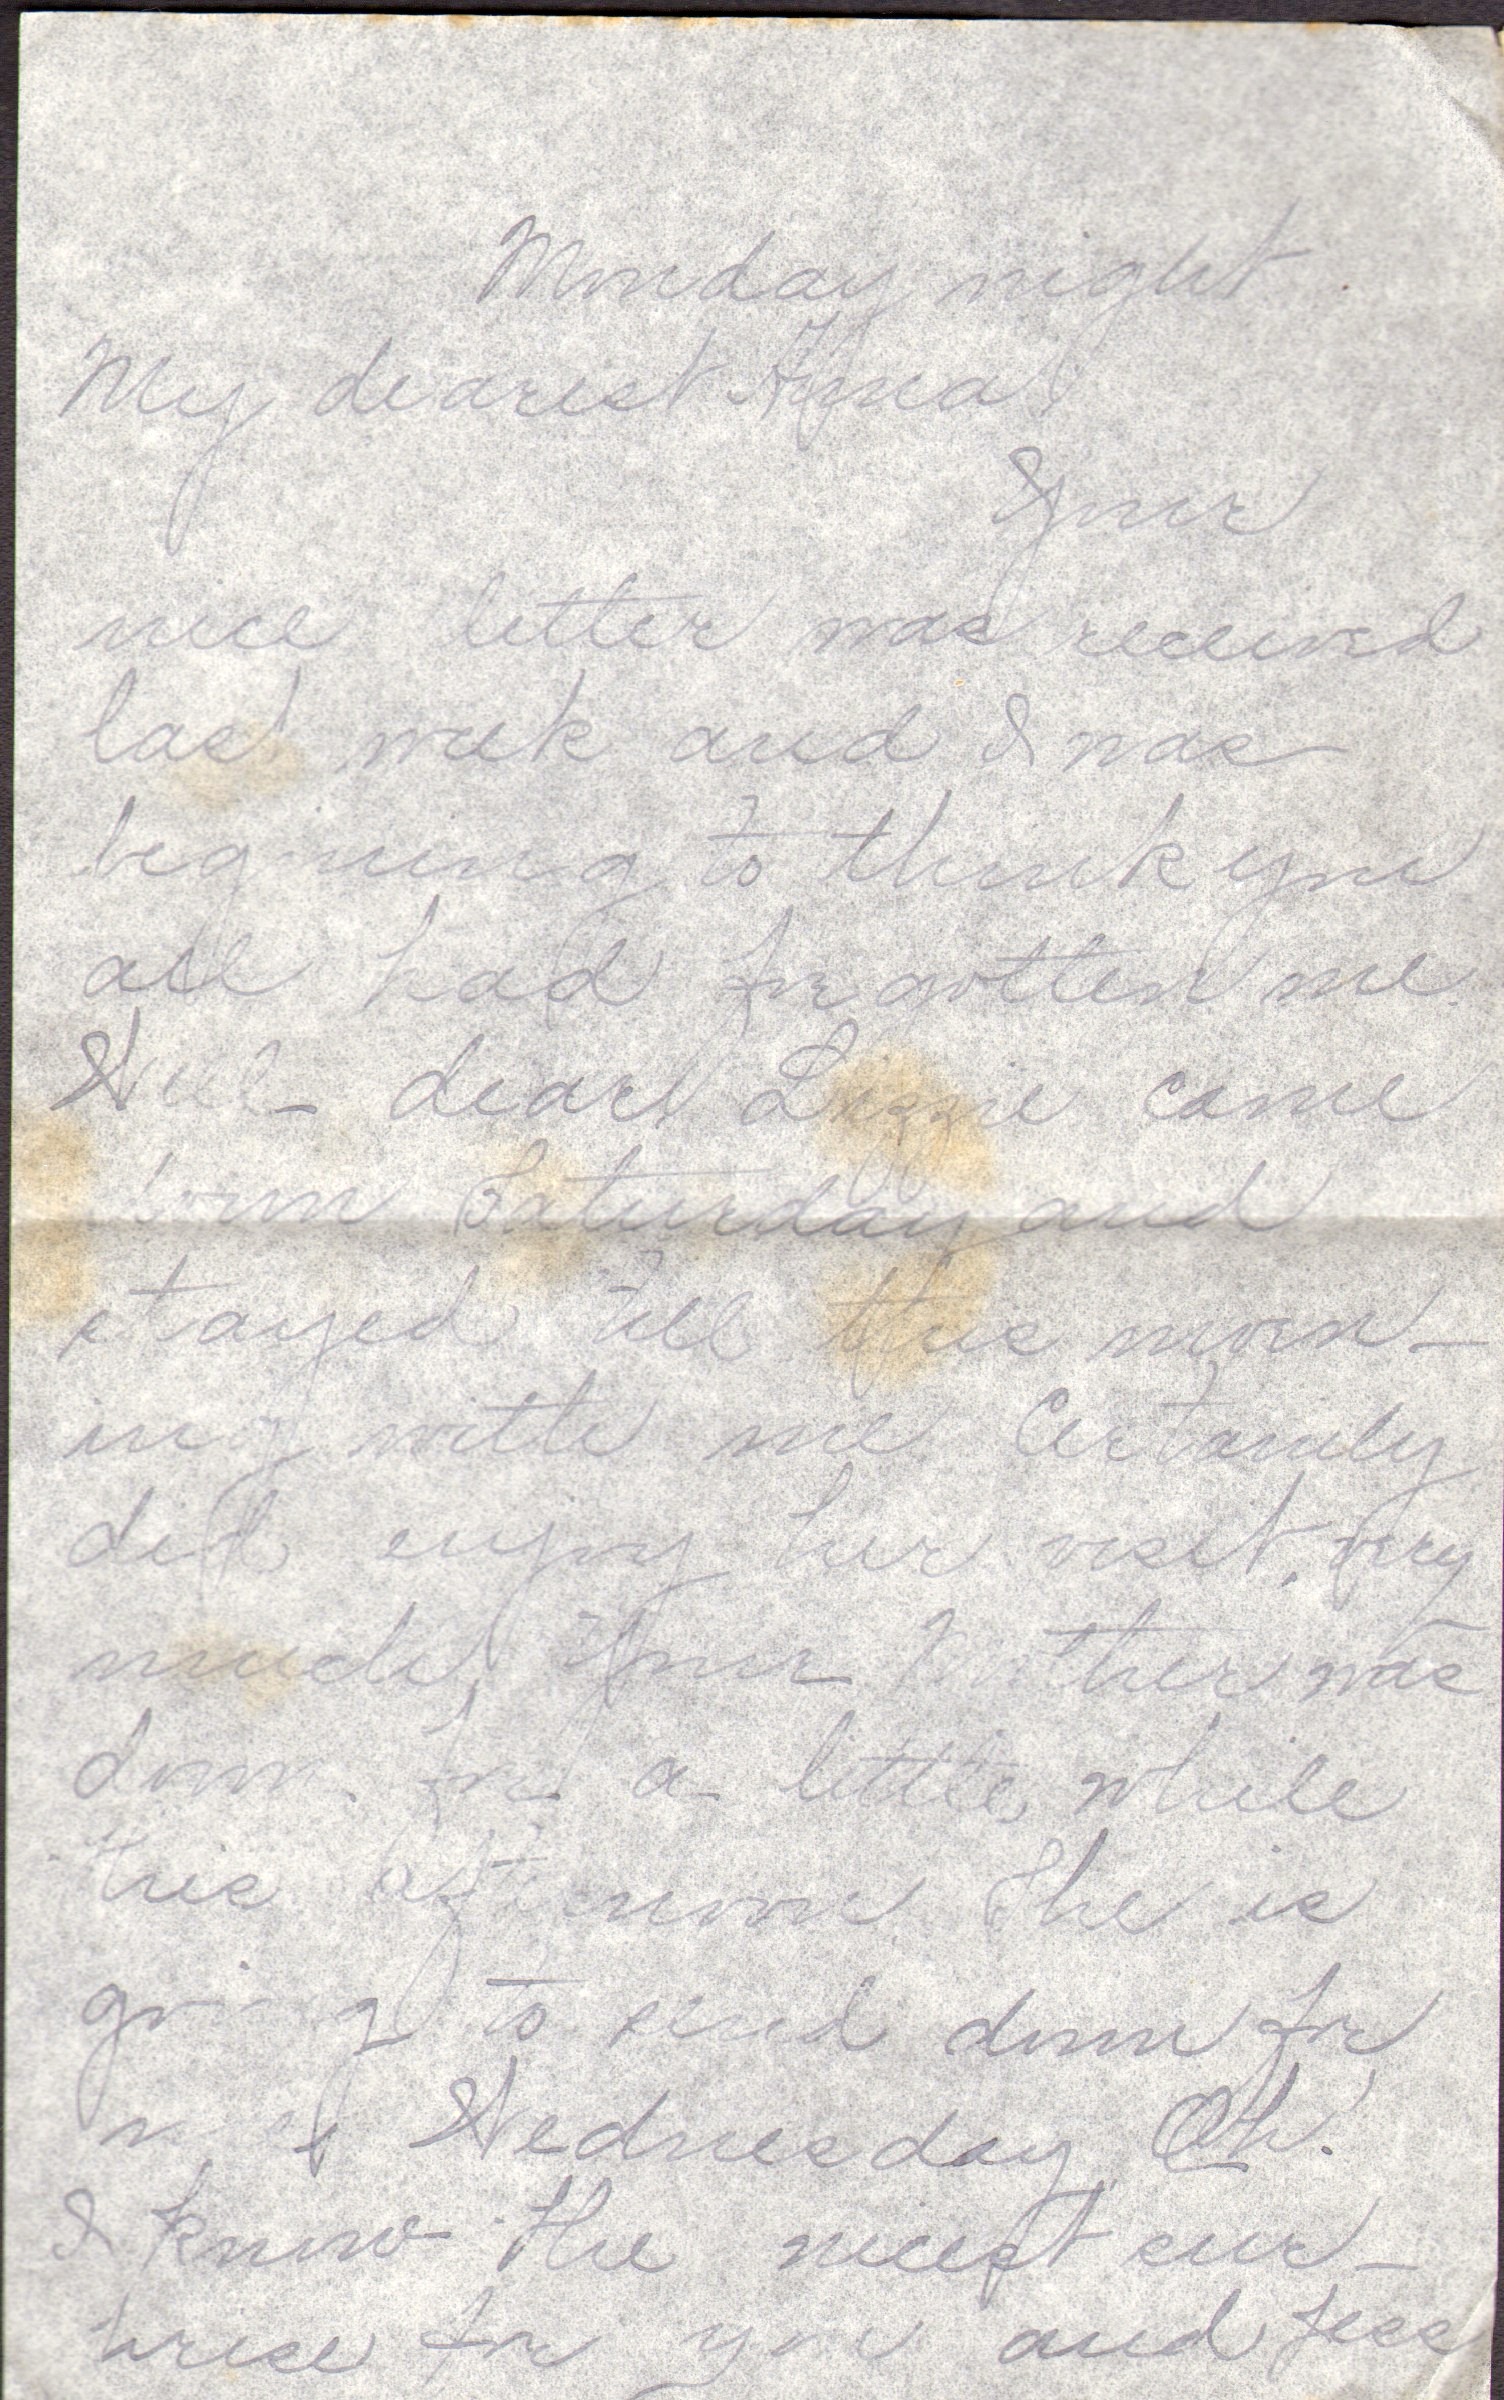 Monday night
My dearest
Your
nice letter was received
last week and I was
begining to think you
all had forgotten me.
Well - dear Lizzie came
down Saturday and
stayed till this morn-
ing with me Certainly
did enjoy her visit, very
much, Your Mother was
down for a little while
this afternoon She is
going to send down for
me Wednesday, Oh!
I know the nicest sur-
prise for you and Jess